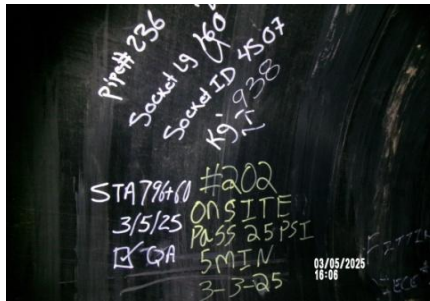 Pipe# 236
Socket Lg
Socket ID 4507
Kg: 938
STA 796+60
3/5/25
☑ QA
#202
ONSITE
Pass 25 PSI
5 MIN
3-3-25
03/05/2025
16:06